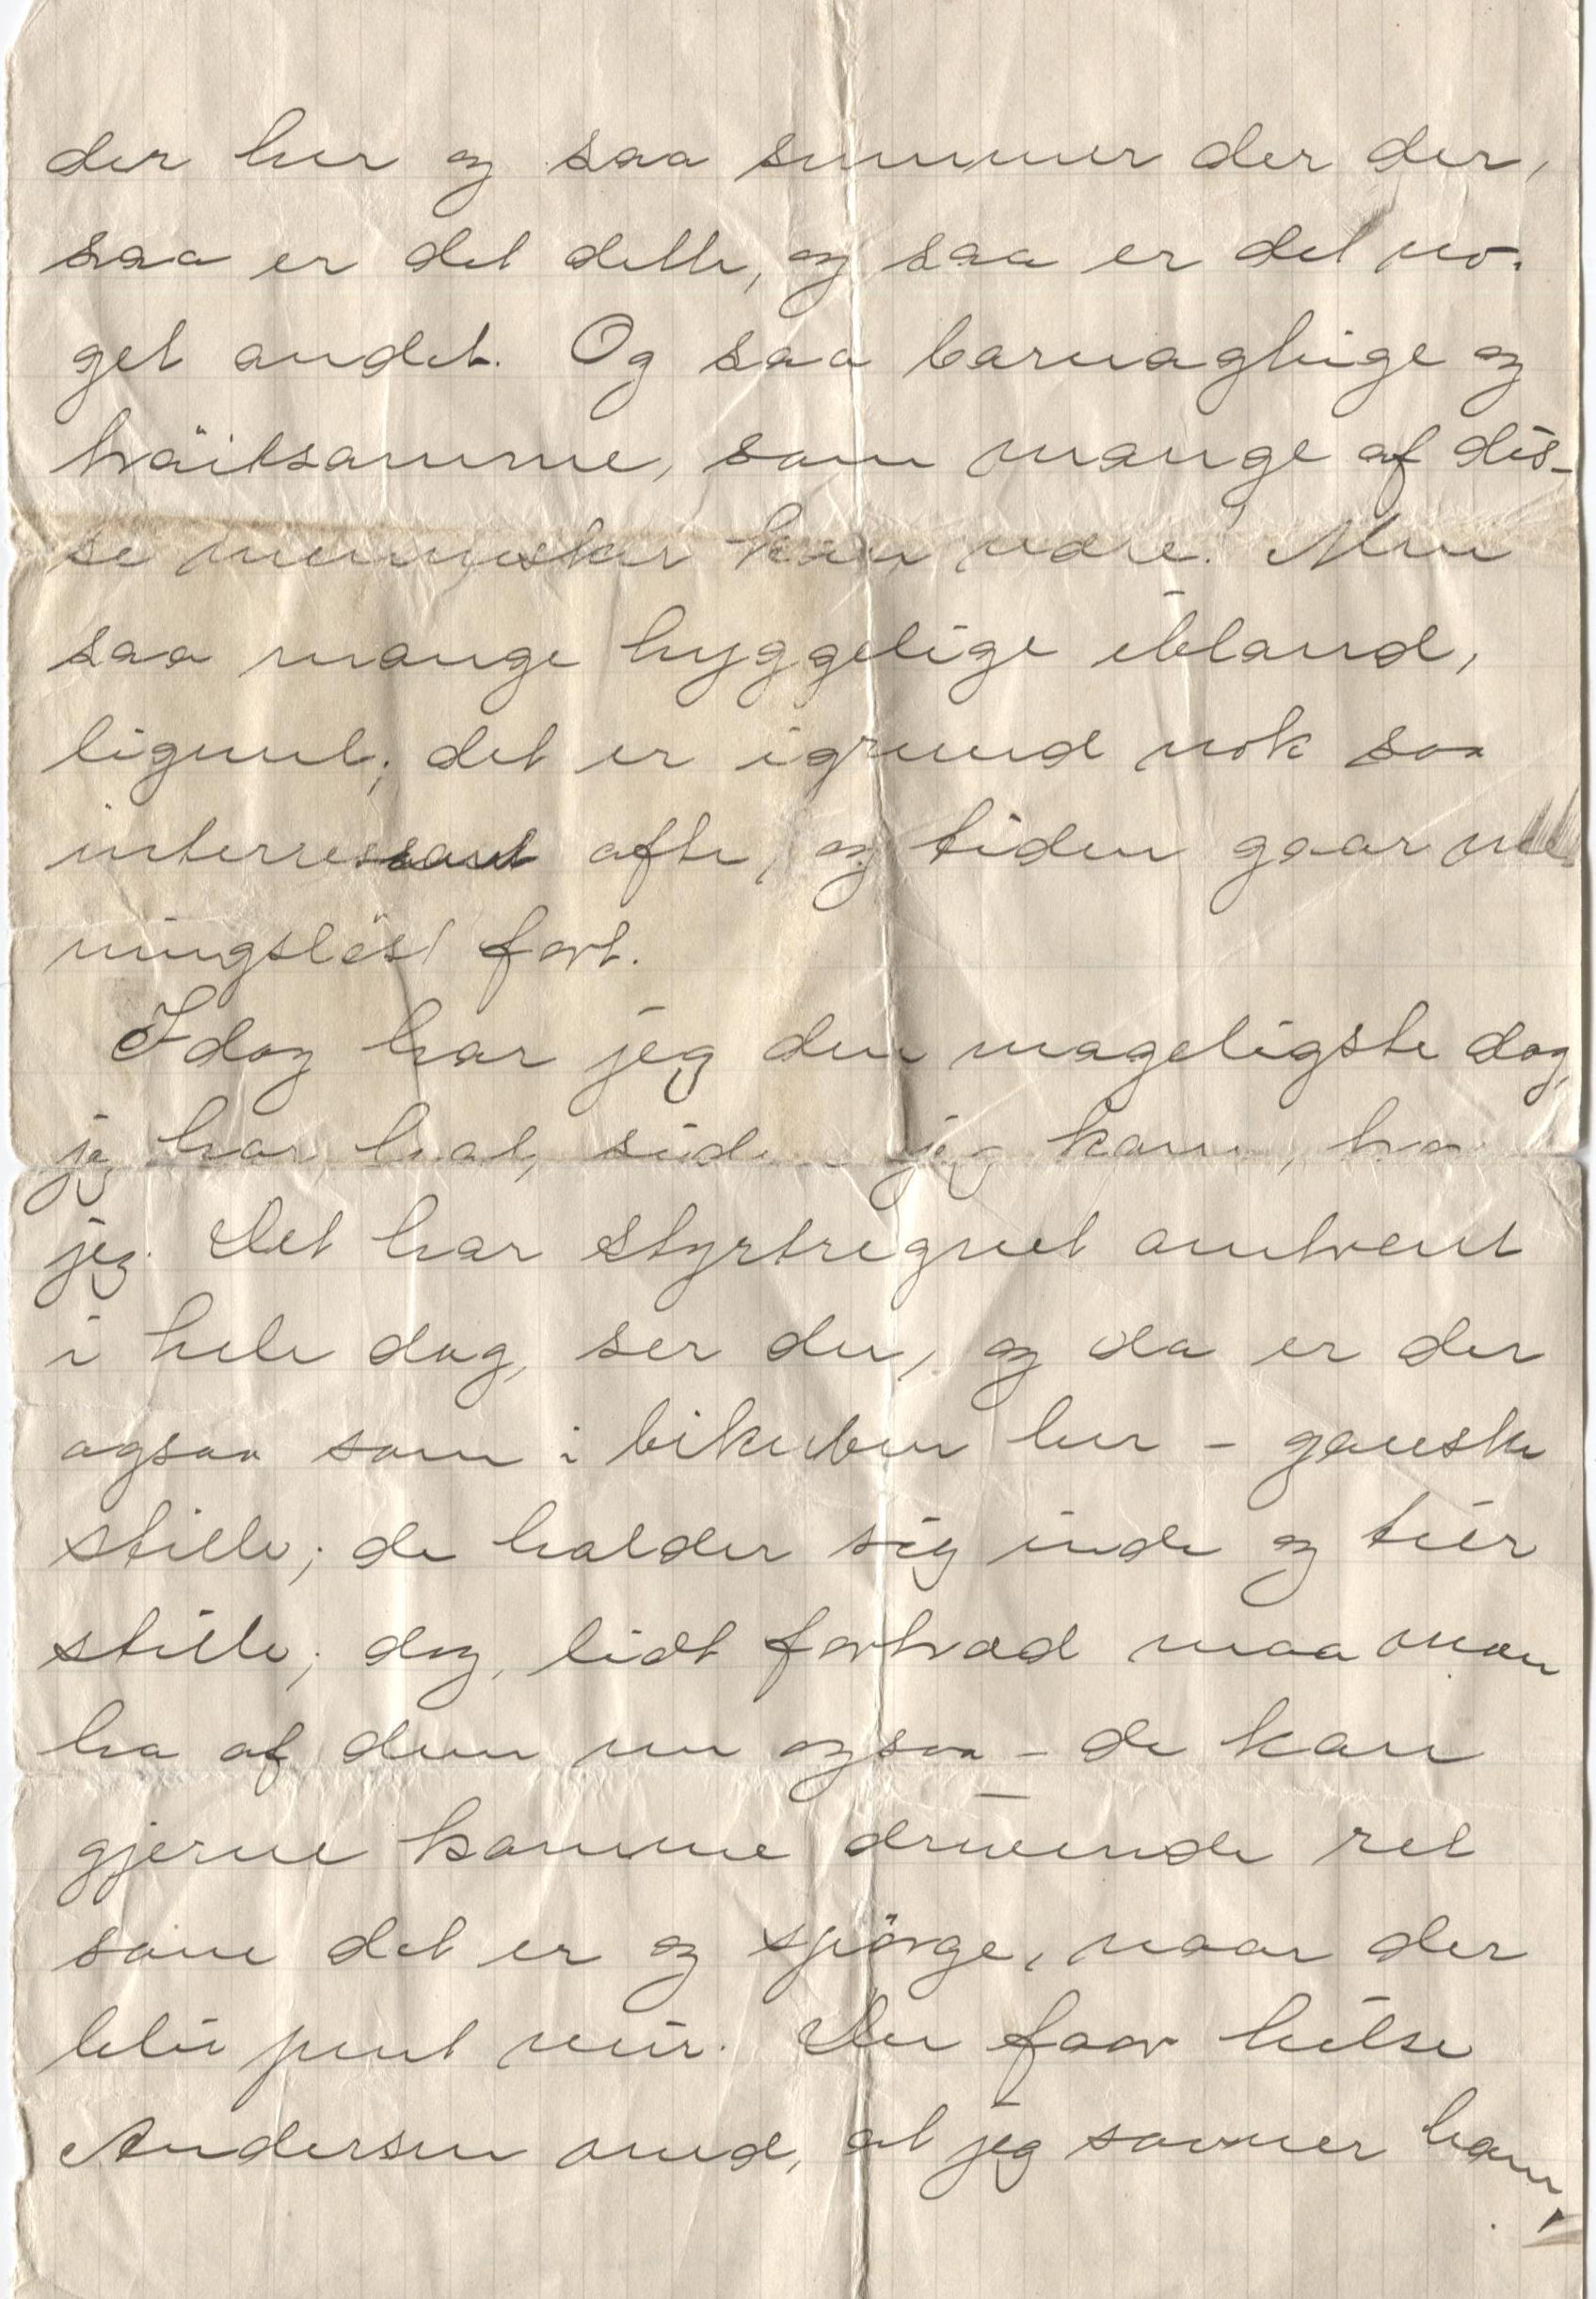 der her og saa summer der der,
saa er det dette, og saa er det no-
get andet. Og saa barnaglige og
kväitsamme, som mange af dis-
se mennesker kan være! Men
saa mange hyggelige ibland,
ligevel; det er igrund nok saa
interressant ofte, og tiden gaar
ningslöst fort.
Idag har jeg den mageligste dag,
jeg har hat, siden jeg kom, har
jeg. Det har styrtregnet omtrent
i hele dag, ser du, og da er der
ogsaa som i bikuben her - ganske
stille; de holder sig inde og tier
stille; dog, lidt forhvad maa man
ha af dem nu ogsaa - de kan
gjerne komme drivende ret
som det er og spörge, naar der
blir pent veir. Du faar hilse
Andersen med, at jeg savner ham,